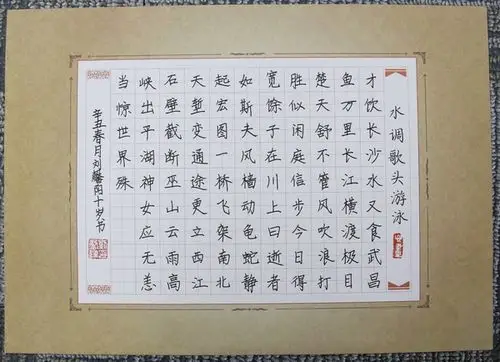 水调歌头游泳
才饮长沙水又食武昌
鱼万里长江横渡极目
楚天舒不管风吹浪打
胜似闲庭信步今日得
宽馀子在川上曰逝者
如斯夫风樯动龟蛇静
起宏图一桥飞架南北
天堑变通途更立西江
石壁截断巫山云雨高
峡出平湖神女应无恙
当惊世界殊
辛丑春月刘阳十岁书